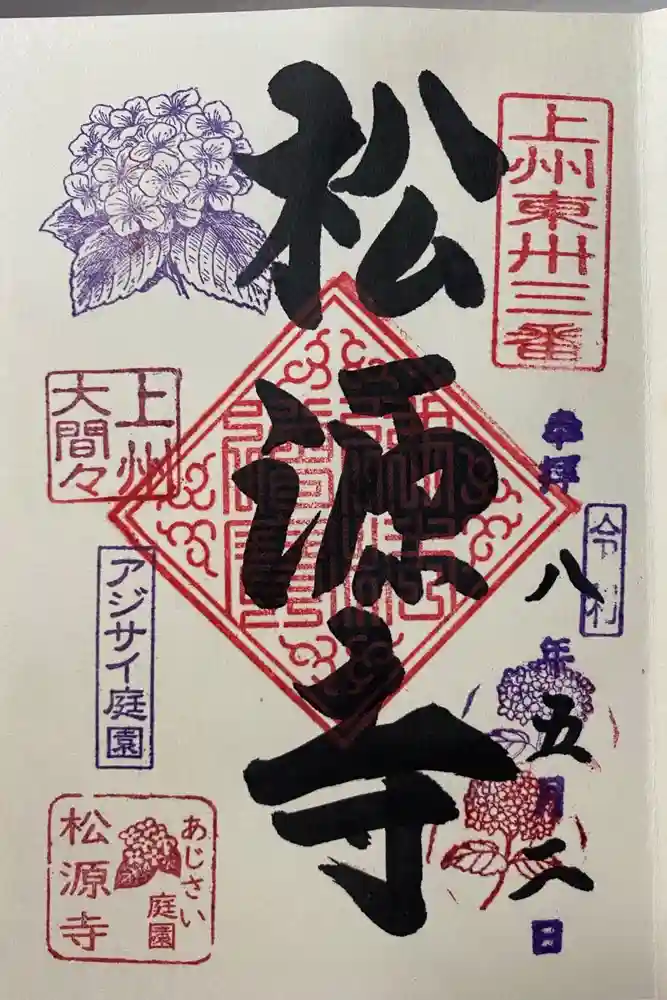 上州東卅三番
奉拝
令和
八年五月 日
松源寺
上州
大間々
アジサイ庭園
あじさい
庭園
松源寺